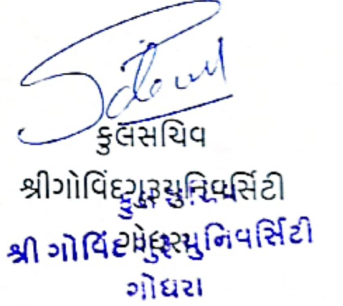 કુલસચિવ
શ્રીગોવિંદગુરુયુનિવર્સિટી
ગોધરા
શ્રી ગોવિંદ ગુરુ યુનિવર્સિટી
ગોધરા